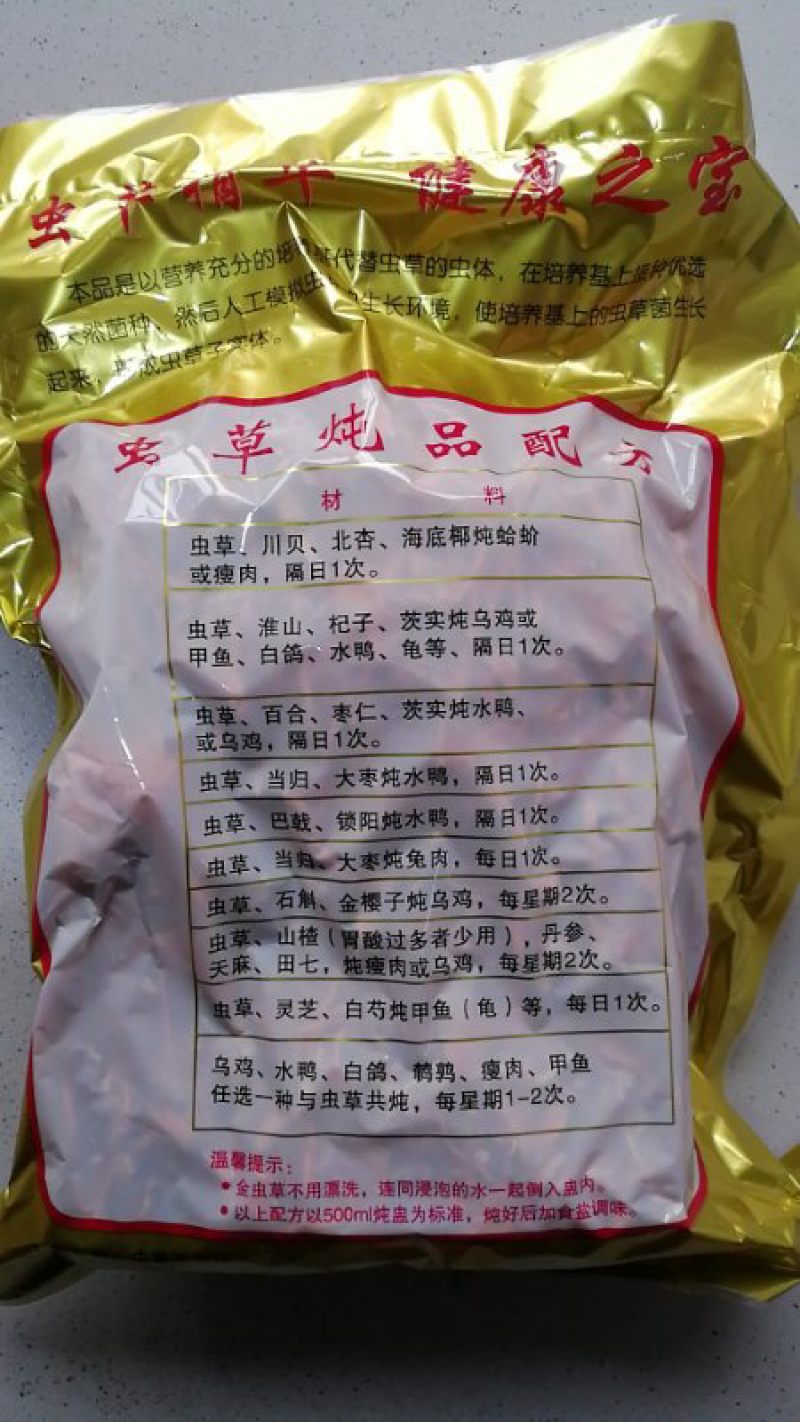 虫 健康之宝
本品是以营养充分的培养基代替虫草的虫体，在培养基上接种优选
的天然菌种、然后人工模拟虫 生长环境，使培养基上的虫草菌生长
起来， 虫草子实体。
虫草炖品配方
材 料
虫草、川贝、北杏、海底椰炖蛤蚧
或瘦肉，隔日1次。
虫草、淮山、杞子、茨实炖乌鸡或
甲鱼、白鸽、水鸭、龟等、隔日1次。
虫草、百合、枣仁、茨实炖水鸭、
或乌鸡，隔日1次。
虫草、当归、大枣炖水鸭，隔日1次。
虫草、巴戟、锁阳炖水鸭，隔日1次。
虫草、当归、大枣炖兔肉，每日1次。
虫草、石斛、金樱子炖乌鸡，每星期2次。
虫草、山楂（胃酸过多者少用），丹参、
天麻、田七，炖瘦肉或乌鸡，每星期2次。
虫草、灵芝、白芍炖甲鱼（龟）等，每日1次。
乌鸡、水鸭、白鸽、鹌鹑、瘦肉、甲鱼
任选一种与虫草共炖，每星期1-2次。
温馨提示：
●金虫草不用漂洗，连同浸泡的水一起倒入盅内。
●以上配方以500ml炖盅为标准，炖好后加食盐调味。